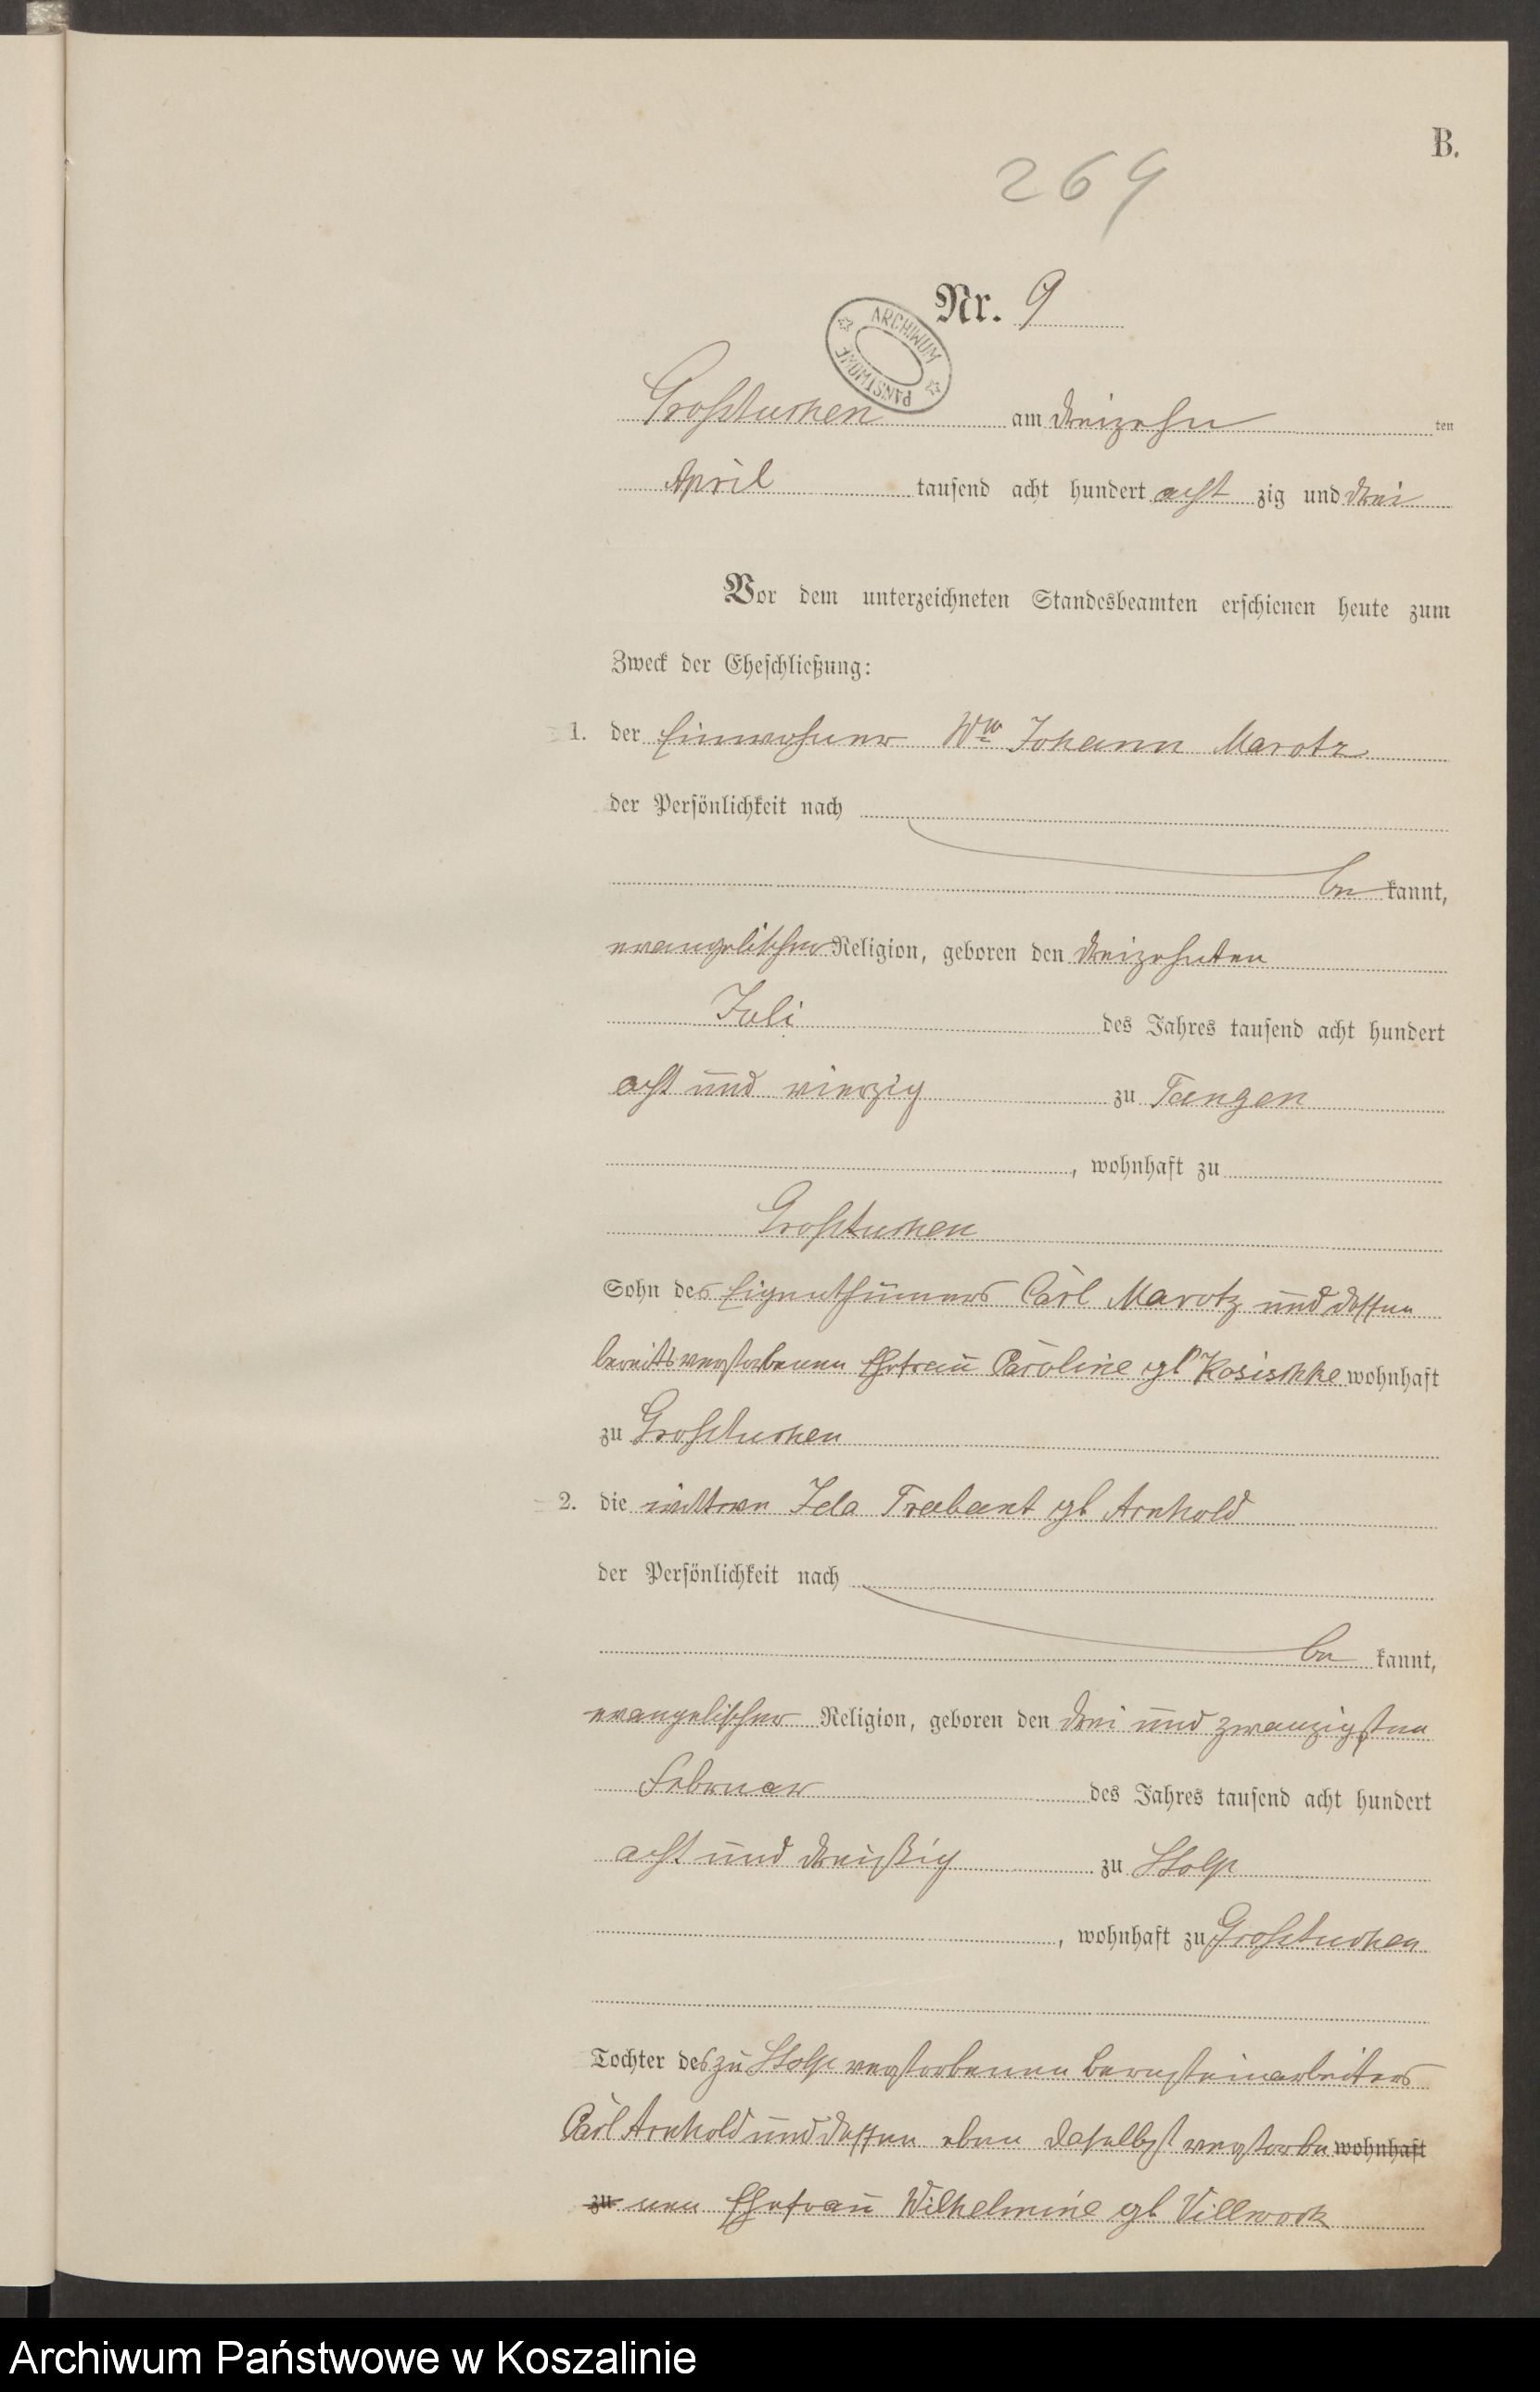 B.
269
Nr. 9
ARCHIWUM PAŃSTWOWE
Großtuchen am dreizehn ten
April tausend acht hundert acht zig und drei
Vor dem unterzeichneten Standesbeamten erschienen heute zum
Zweck der Eheschließung:
1. der Einwohner Ww Johann Marotz
der Persönlichkeit nach
be kannt,
evangelischer Religion, geboren den dreizehnten
Juli des Jahres tausend acht hundert
acht und vierzig zu Tangen
, wohnhaft zu
Großtuchen
Sohn des Eigenthümers Carl Marotz und dessen
bereits verstorbenen Ehefrau Caroline gb Kosischke wohnhaft
zu Großtuchen
2. die Ida Trabant gb Arnhold
der Persönlichkeit nach
be kannt,
evangelischer Religion, geboren den drei und zwanzigsten
Februar des Jahres tausend acht hundert
acht und dreißig zu Stolp
, wohnhaft zu Großtuchen
Tochter des zu Stolp verstorbenen Bernsteinarbeiters
Carl Arnhold und dessen eben daselbst verstorbe wohnhaft
zu nen Ehefrau Wilhelmine gb Villwock
Archiwum Państwowe w Koszalinie